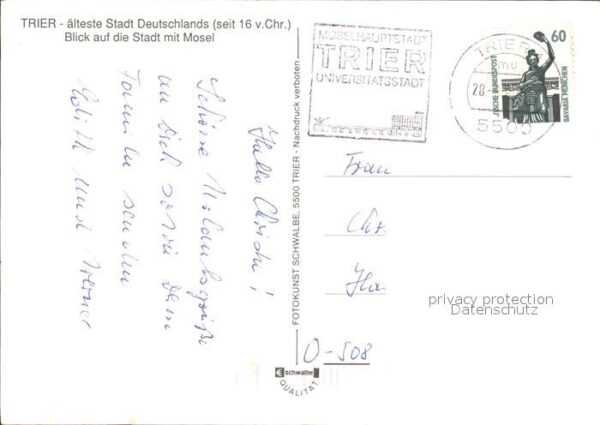 TRIER - älteste Stadt Deutschlands (seit 16 v.Chr.)
Blick auf die Stadt mit Mosel
Hallo Christa!
Schöne Urlaubsgrüße
an Dich sowie Deine
Familie senden
Edith und Werner
FOTOKUNST SCHWALBE, 5500 TRIER - Nachdruck verboten
schwalbe
QUALITÄT
MOSELHAUPTSTADT
TRIER
UNIVERSITÄTSSTADT
TRIER
mu
28.
5500
60
DEUTSCHE BUNDESPOST
BAVARIA MÜNCHEN
Frau
Chr.
Ha
O-508
privacy protection
Datenschutz